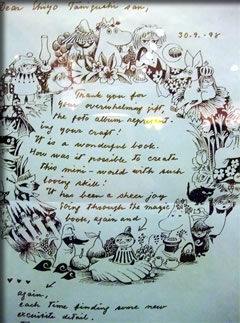 Dear Chiyo Taniguchi san,
30.9.-98
Thank you for
your overwhelming gift,
the foto album represent-
ing your craft!
It is a wonderful book.
How was it possible to create
this mini-world with such
loving skill!
It has been a sheer joy
going through the magic
book, again and
again,
each time finding some new
exquisite detail.